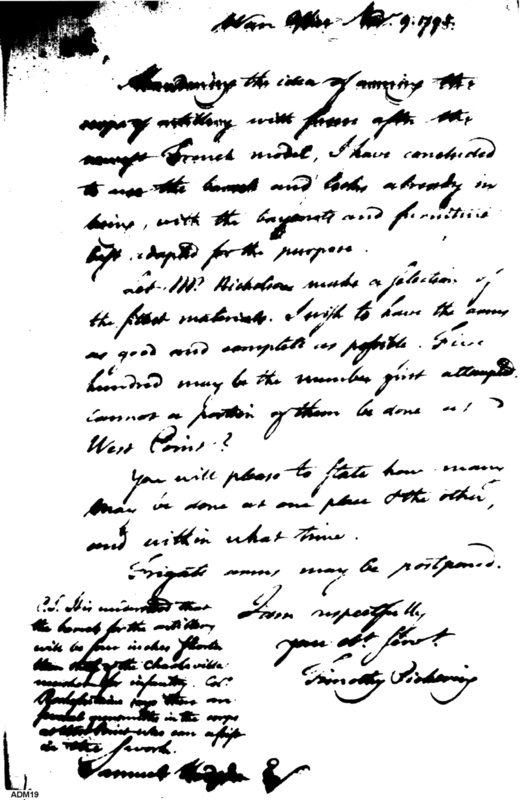 War Office Nov. 9. 1795.
Abandoning the idea of arming the
corps of artillery with fusees after the
newest French model, I have concluded
to use the barrels and locks already in
being, with the bayonets and furniture
best adapted for the purpose.
Let Mr. Nicholson make a selection of
the fittest materials. I wish to have the arms
as good and complete as possible. Five
hundred may be the number first attempted.
Cannot a portion of them be done at
West Point?
You will please to state how many
may be done at one place & the other,
and within what time.
Frigate arms may be postponed.
I am respectfully
your obt. servt.
Timothy Pickering
P.S. It is understood that
the barrels for the artillery
will be four inches shorter
than that of the Charleville
musket for infantry. Col.
Rochefontaine says there are
several gunsmiths in the corps
at West Point who can assist
in the work.
Samuel Hodgdon Esq
ADM19